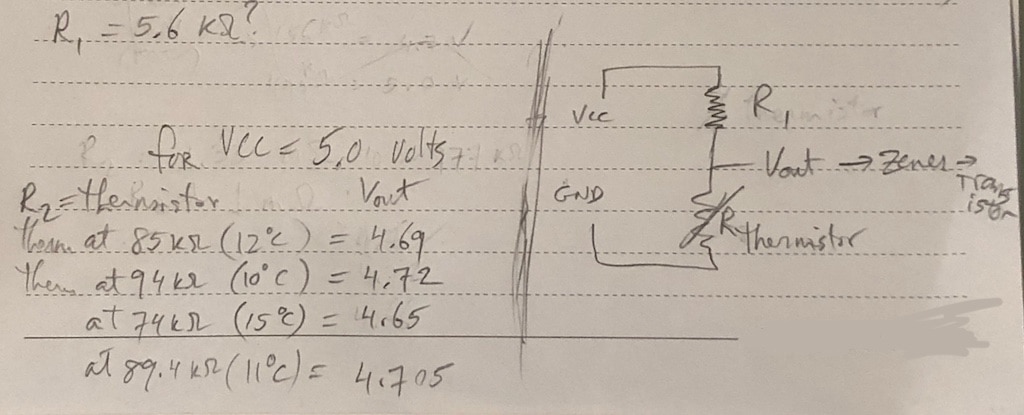 R₁ = 5.6 kΩ?
for Vcc = 5.0 volts
R₂ = thermistor Vout
therm at 85kΩ (12°C) = 4.69
them at 94kΩ (10°C) = 4.72
at 74kΩ (15°C) = 4.65
at 89.4kΩ (11°C) = 4.705
Vcc
R₁
Vout → Zener → Transistor
GND
R thermistor